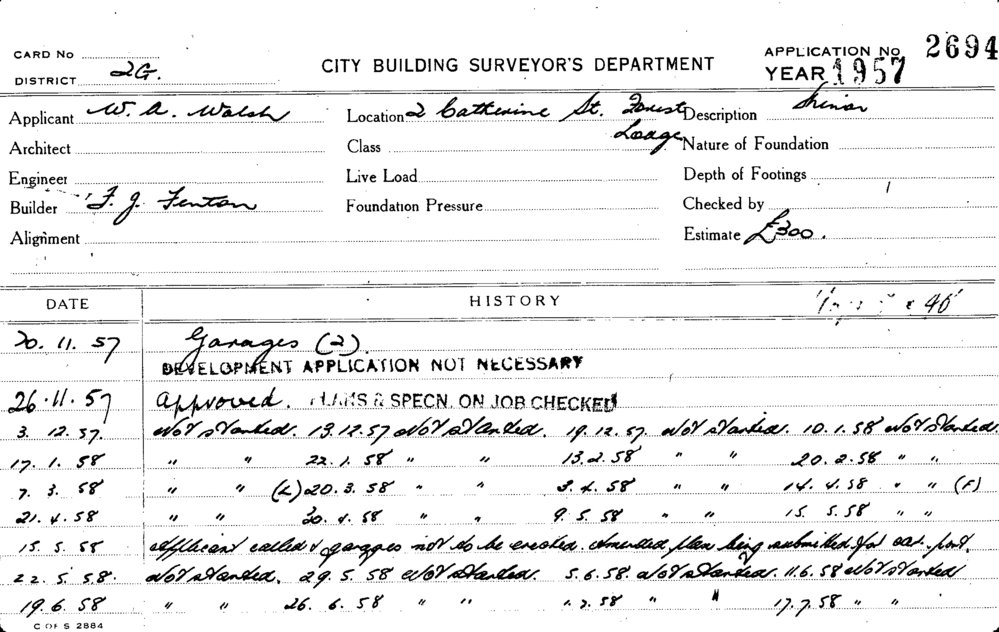 CARD No
DISTRICT 2G.
CITY BUILDING SURVEYOR'S DEPARTMENT
APPLICATION No 2694
YEAR 1957
Applicant W. A. Walsh
Location 2 Catherine St. Forest Lodge
Description Minor
Architect
Class
Nature of Foundation
Engineer
Live Load
Depth of Footings
Builder F. J. Fenton
Foundation Pressure
Checked by
Alignment
Estimate £300.
DATE HISTORY
20. 11. 57 Garages (2).
DEVELOPMENT APPLICATION NOT NECESSARY
26. 11. 57 Approved. PLANS & SPECN. ON JOB CHECKED
3. 12. 57. Not started. 13.12.57 Not started. 19.12.57. Not started. 10.1.58 Not started.
17. 1. 58 " " 22. 1. 58 " " 13.2.58 20.2.58 " "
7. 3. 58 " " (L) 20. 3. 58 " " 3.4.58 " " 14. 4.58 " " (F)
21. 4. 58 " " 30. 4. 58 " " 9. 5. 58 " " 15. 5.58 " "
15. 5. 58 Applicant called & garages not to be erected. Amended plan being submitted for car port.
22. 5. 58. Not started. 29. 5. 58 Not started. 5.6.58. Not started. 11.6.58 Not started
19. 6. 58 " " 26. 6. 58 " " .7.58 " " 17.7.58 " "
C OF S 2884